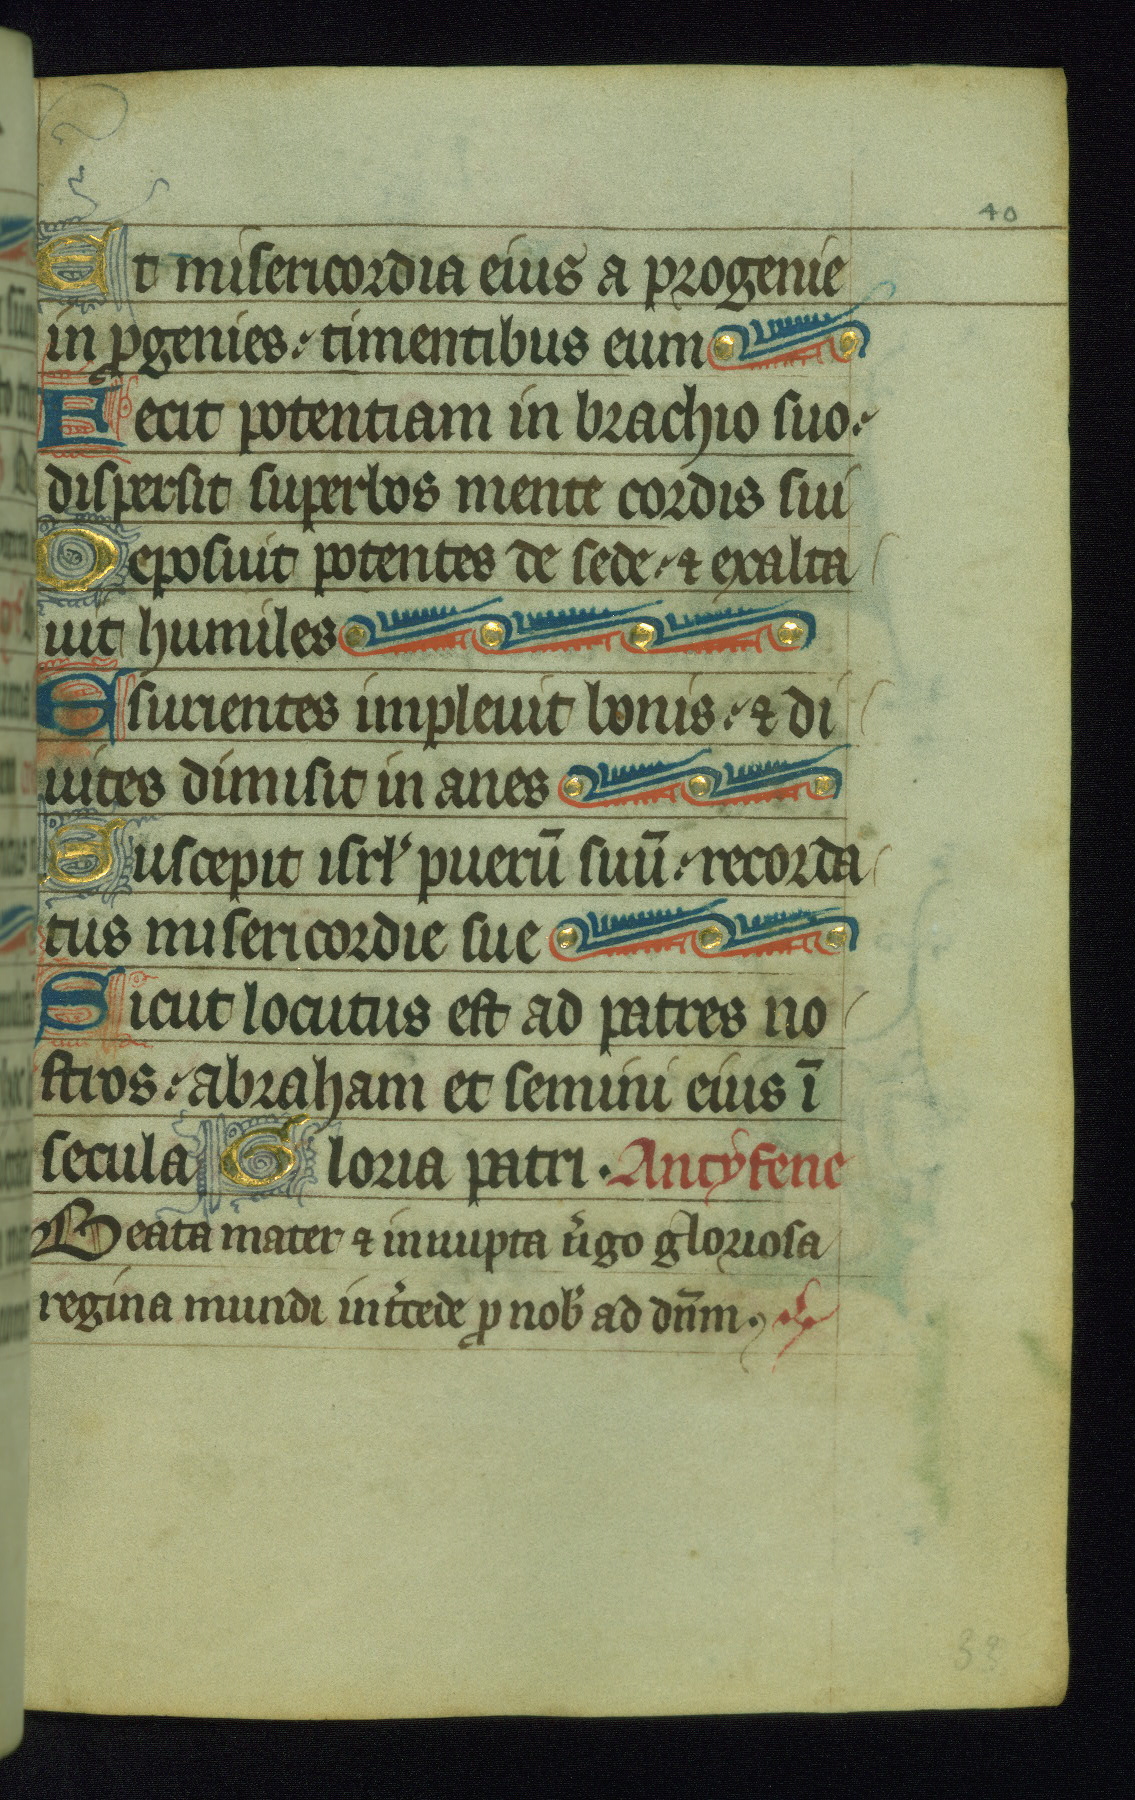 40
Et misericordia eius a progenie
in ꝓgenies : timentibus eum
Fecit potentiam in brachio suo :
dispersit superbos mente cordis sui
Deposuit potentes de sede : ⁊ exalta
uit humiles
Esurientes impleuit bonis : ⁊ di
uites dimisit in anes
Suscepit isrl' puerū suū : recorda
tus misericordie sue
Sicut locutus est ad patres no
stros : abraham et semini eius ī
secula Gloria patri . Antyfene
Beata mater ⁊ innupta u̍go gloriosa
regina mundi int̍cede ꝓ nob̍ ad dn̄m .